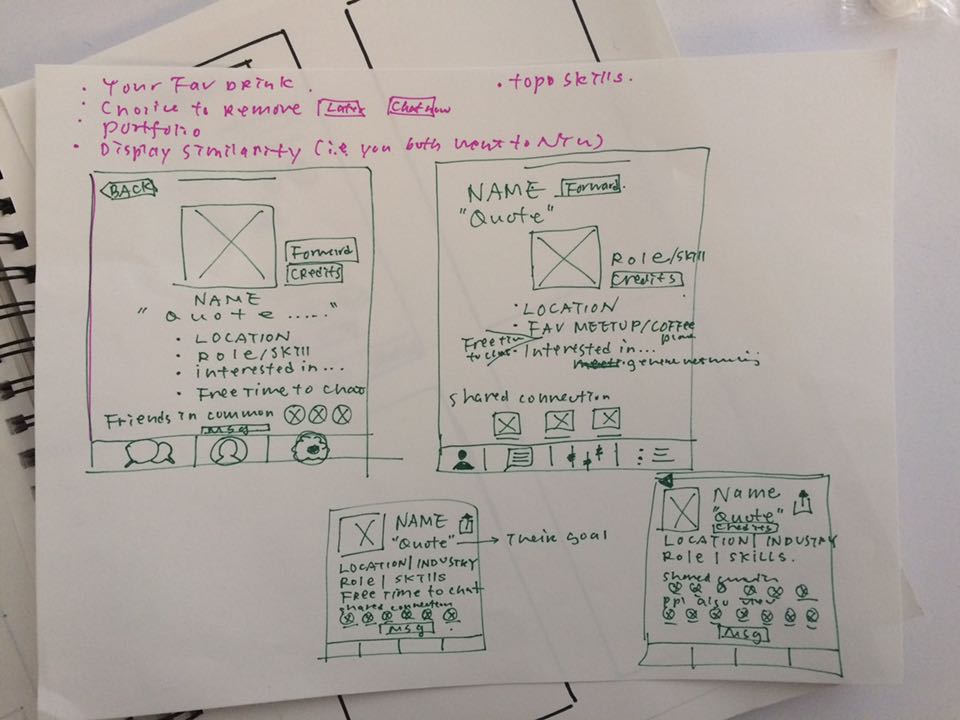 · Your Fav Drink.
· top skills.
· Choice to remove Later Chat now
· Portfolio
· Display similarity (i.e you both went to NTU)
BACK
Forward
Credits
NAME
"Quote ....."
· LOCATION
· Role/Skill
· interested in...
· Free Time to chat
Friends in common
Msg
NAME Forward.
"Quote"
Role/Skill
Credits
· LOCATION
· FAV MEETUP/COFFEE
place
Free time
to chat
· Interested in...
general networking
shared connection
NAME
"Quote" → Their goal
LOCATION | INDUSTRY
Role | SKILLS
Free Time to chat
shared connection
Msg
Name
"Quote"
Credits
LOCATION | INDUSTRY
Role | SKILLS.
shared
ppl also view
Msg